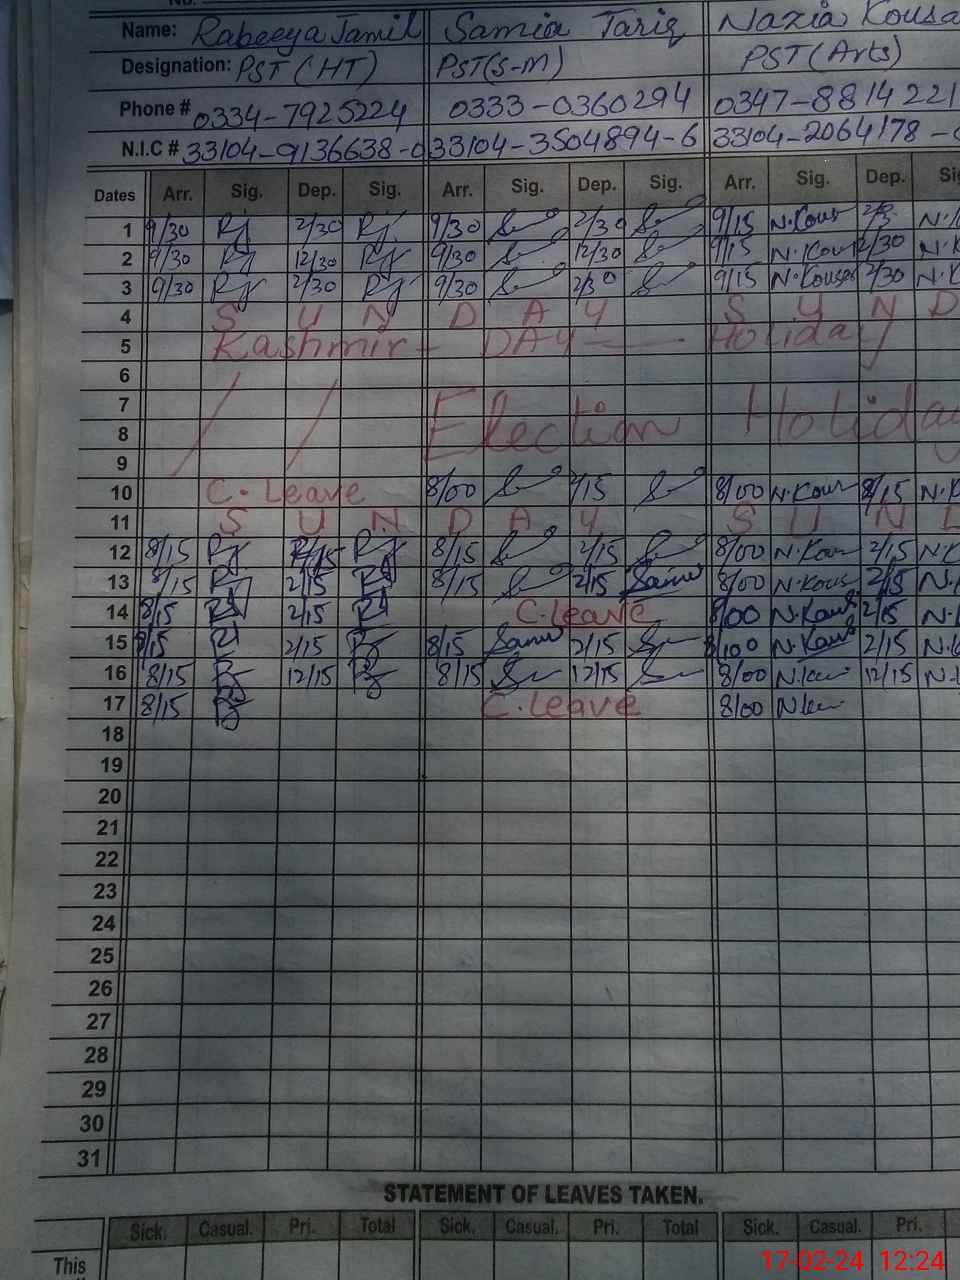 No.
Name: Rabeeya Jamil Samia Tariq Nazia Kousa
Designation: PST (HT) PST(S-M) PST(Arts)
Phone # 0334-7925224 0333-0360294 0347-8814221
N.I.C # 33104-9136638-0 33104-3504894-6 33104-2064178-
Dates Arr. Sig. Dep. Sig. Arr. Sig. Dep. Sig. Arr. Sig. Dep. Sig
1 9/30 Rj 2/30 Rj 9/30 2/30 9/15 N.Kous N.K
2 9/30 Rj 12/30 Rj 9/30 12/30 9/15 N.Kous 12/30 N.K
3 9/30 Rj 2/30 Rj 9/30 2/30 9/15 N.Kousa 2/30 N.K
4 S U N D A Y S U N D
5 Kashmir - DAY - Holiday
6
7 / / Election Holiday
8
9
10 C. Leave 8/00 2/15 8/00 N.Kous 2/15 N.K
11 S U N D A Y S U N D
12 8/15 Rj 2/15 Rj 8/15 2/15 8/00 N.Kou 2/15 N.K
13 8/15 Rj 2/15 Rj 8/15 2/15 Samia 8/00 N.Kous 2/15 N.
14 8/15 Rj 2/15 Rj C.leave 8/00 N.Kous 2/15 N.
15 8/15 Rj 2/15 Rj 8/15 Samia 2/15 8/00 N.Kous 2/15 N.K
16 8/15 Rj 12/15 Rj 8/15 12/15 8/00 N.kou 12/15 N.
17 8/15 Rj C.leave 8/00 N.kou
18
19
20
21
22
23
24
25
26
27
28
29
30
31
STATEMENT OF LEAVES TAKEN.
Sick. Casual. Pri. Total Sick. Casual. Pri. Total Sick. Casual. Pri.
This
17-02-24 12:24